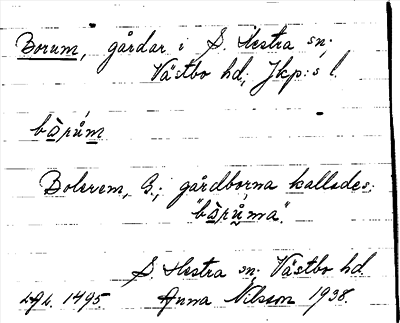 Borum, gårdar i S. Hestra sn;
Västbo hd; Jkp:s l.
bàrů́m
Bolerem, B.; gårdborna kallades:
"bàrů́ma".
S. Hestra sn; Västbo hd
1495 Anna Nilsson 1938.